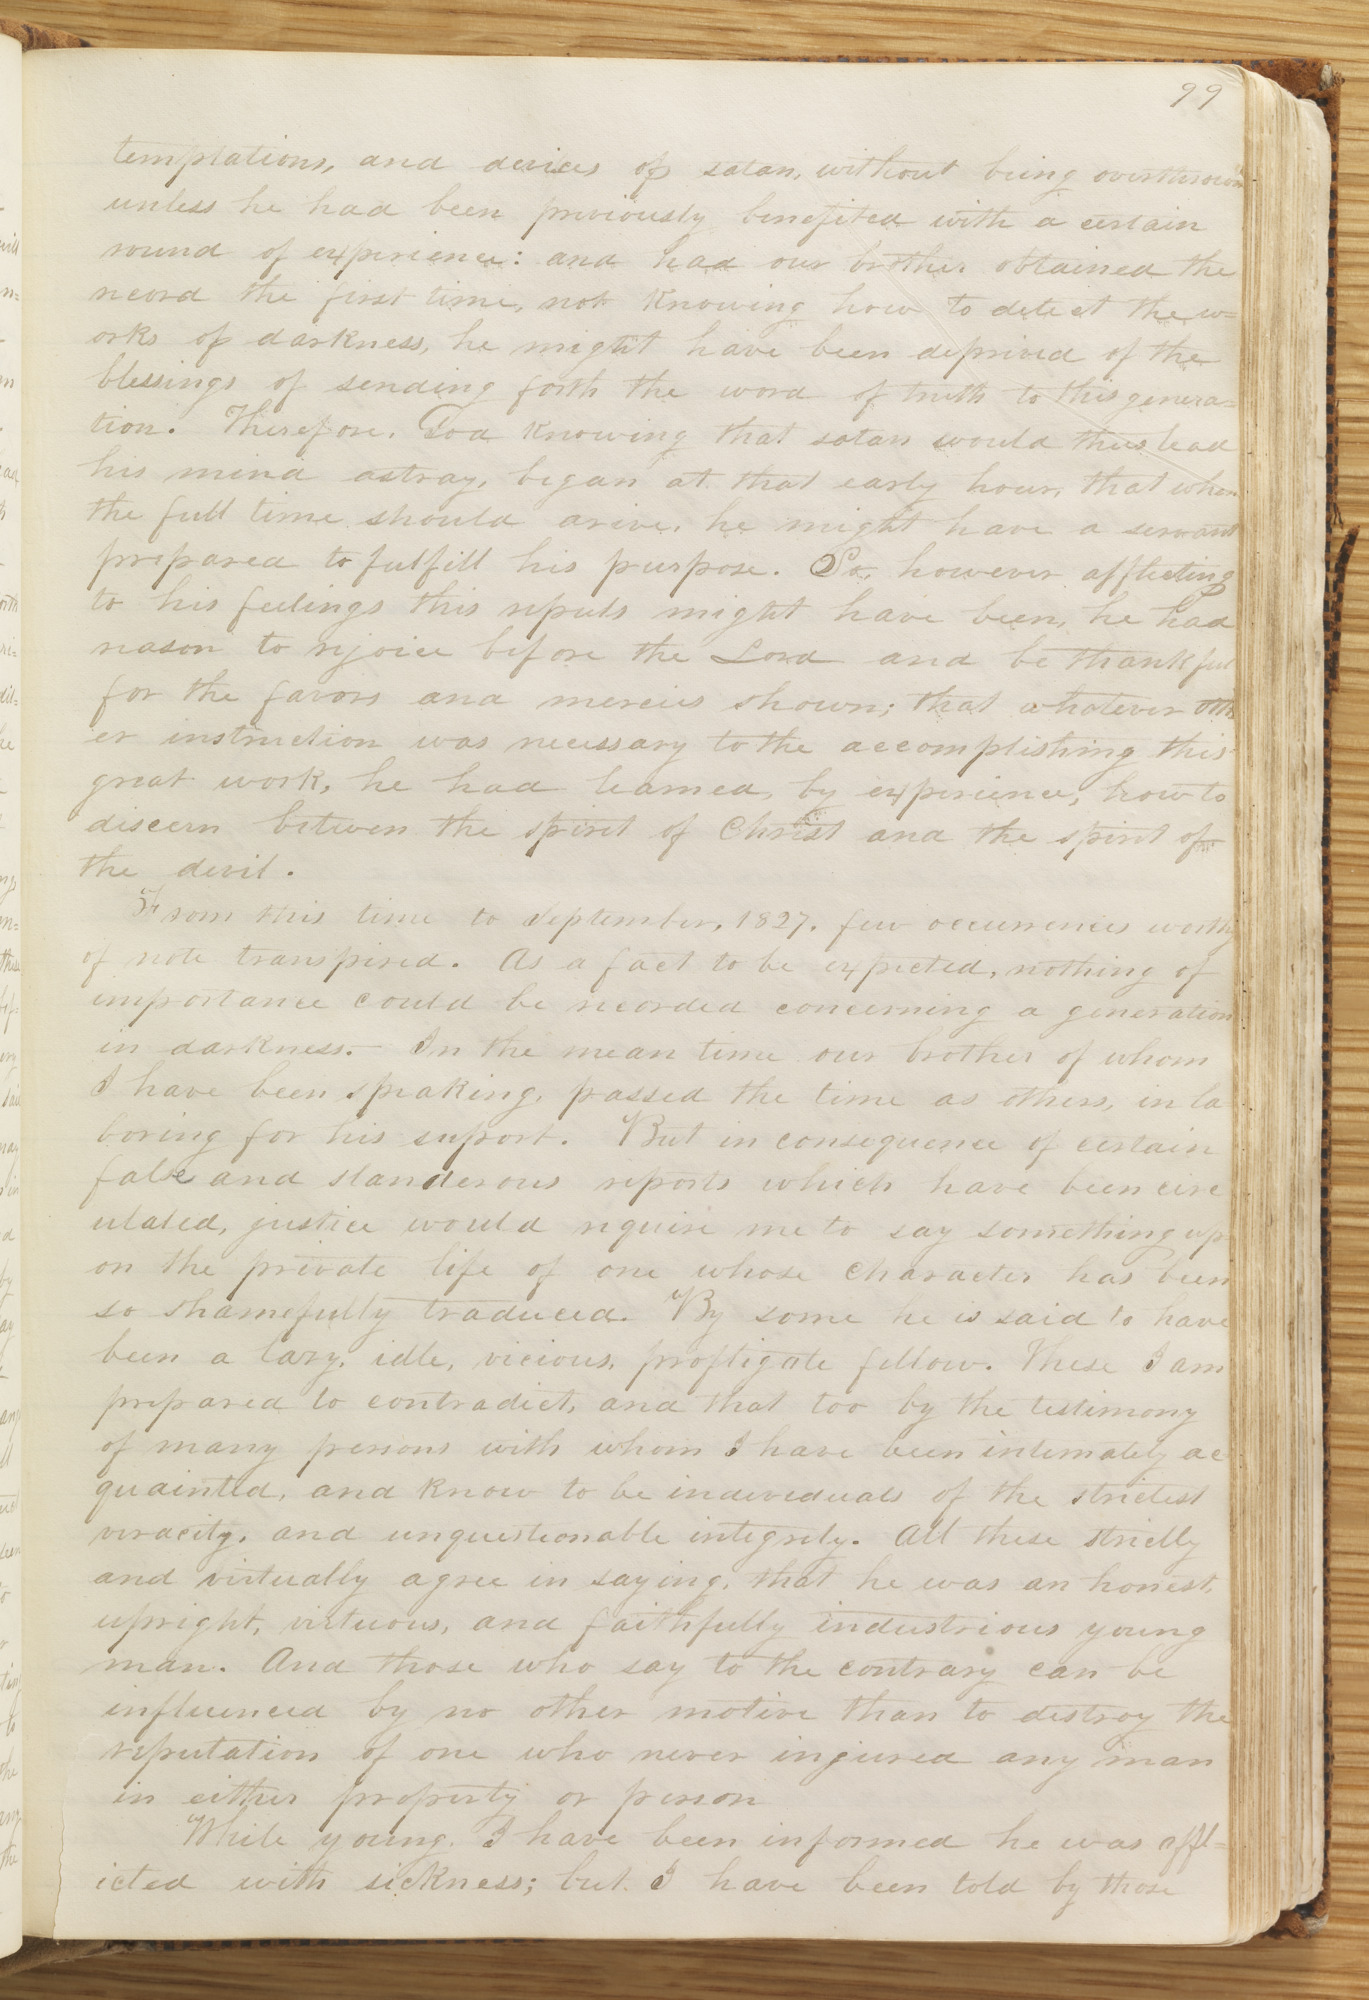 99
temptations, and devices of satan, without being overthrown
unless he had been previously benefited with a certain
round of experience: and had our brother obtained the
record the first time, not knowing how to detect the w=
orks of darkness, he might have been deprived of the
blessings of sending forth the word of truth to this genera=
tion. Therefore, God knowing that satan would thus lead
his mind astray, began at that early hour, that when
the full time should arive, he might have a servant
prepared to fulfill his purpose. So, however afflicting
to his feelings this repuls might have been, he had
reason to rejoice before the Lord and be thankful
for the favors and mercies shown; that whatever oth
er instruction was necessary to the accomplishing this
great work, he had learned, by experience, how to
discern between the spirit of Christ and the spirit of
the devil.
From this time to September, 1827, few occurrences worthy
of note transpired. As a fact to be expected, nothing of
importance could be recorded concerning a generation
in darkness.— In the mean time our brother of whom
I have been speaking, passed the time as others, in la
boring for his suport. But in consequence of certain
false and slanderous reports which have been circ
ulated, justice would require me to say something up
on the private life of one whose character has been
so shamefully traduced. By some he is said to have
been a lazy, idle, vicious, profligate fellow. These I am
prepared to contradict, and that too by the testimony
of many persons with whom I have been intimately ac
quainted, and know to be individuals of the strictest
veracity, and unquestionable integrity. All these strictly
and virtually agree in saying, that he was an honest,
upright, virtuous, and faithfully industrious young
man. And those who say to the contrary can be
influenced by no other motive than to destroy the
reputation of one who never injured any man
in either property or person
While young, I have been informed he was affl=
icted with sickness; but I have been told by those